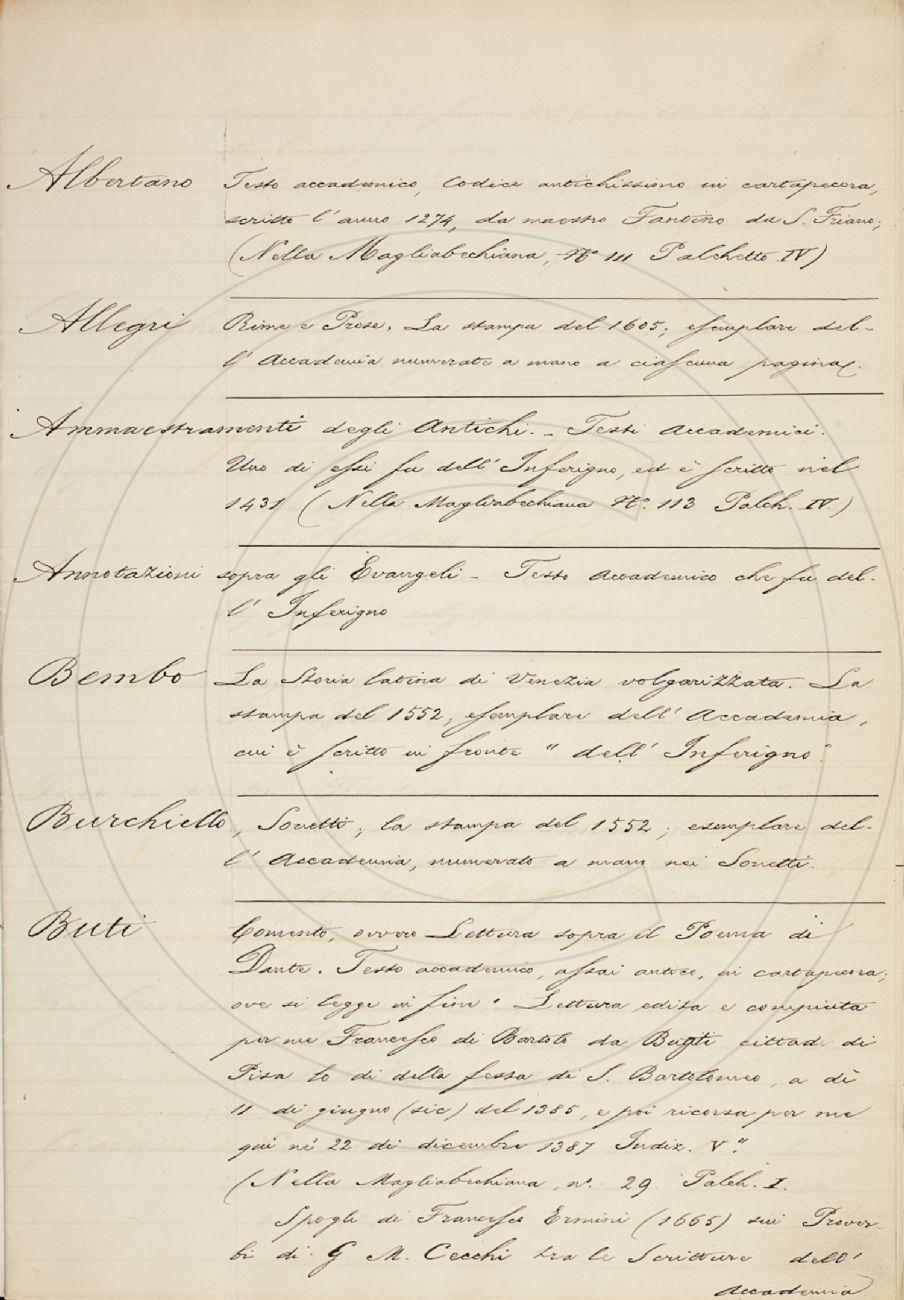 Albertano Testo accademico, Codice antichissimo in cartapecora,
scritto l'anno 1274, da maestro Fantino da S. Friano;
(Nella Magliabechiana, N.° 111 Palchetto IV)
Allegri Rime e Prose. La stampa del 1605; esemplare del-
l'Accademia numerato a mano a ciascuna pagina.
Ammaestramenti degli Antichi. - Testi Accademici.
Uno di essi fu dell'Inferigno, ed è scritto nel
1431 (Nella Magliabechiana N.° 113 Palch. IV.)
Annotazioni sopra gli Evangeli - Testo Accademico che fu del-
l'Inferigno
Bembo La Storia latina di Venezia volgarizzata. La
stampa del 1552, esemplare dell'Accademia,
cui è scritto in fronte "dell'Inferigno".
Burchiello, Sonetti; la stampa del 1552; esemplare del-
l'Accademia, numerato a mano nei Sonetti.
Buti Comento, ovvero Lettura sopra il Poema di
Dante. Testo accademico, assai antico, in cartapecora;
ove si legge in fine "Lettura edita e compiuta
per me Francesco di Bartolo da Buiti cittad. di
Pisa lo dì della festa di S. Bartolomeo, a dì
11 di giugno (sic) del 1385, e poi ricorsa per me
qui nè 22 di dicembre 1387 Indiz. V."
(Nella Magliabechiana, n.° 29 Palch. I.
Spogli di Francesco Ermini (1665) sui Prover-
bi di G M. Cecchi tra le Scritture dell'
Accademia